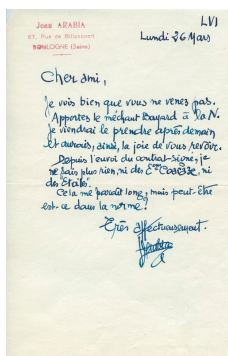 Jean ARABIA
67, Rue de Billancourt
BOULOGNE (Seine)
LVI
Lundi 26 Mars
Cher ami,
Je vois bien que vous ne venez pas.
Apportez le méchant Bayard à la N.
Je viendrai le prendre après demain
et aurais, ainsi, la joie de vous revoir.
Depuis l'envoi du contrat signé, je
ne sais plus rien, ni des Ets, ni
des "Etats".
Cela me paraît long, mais peut-être
est-ce dans la norme?
Très affectueusement.